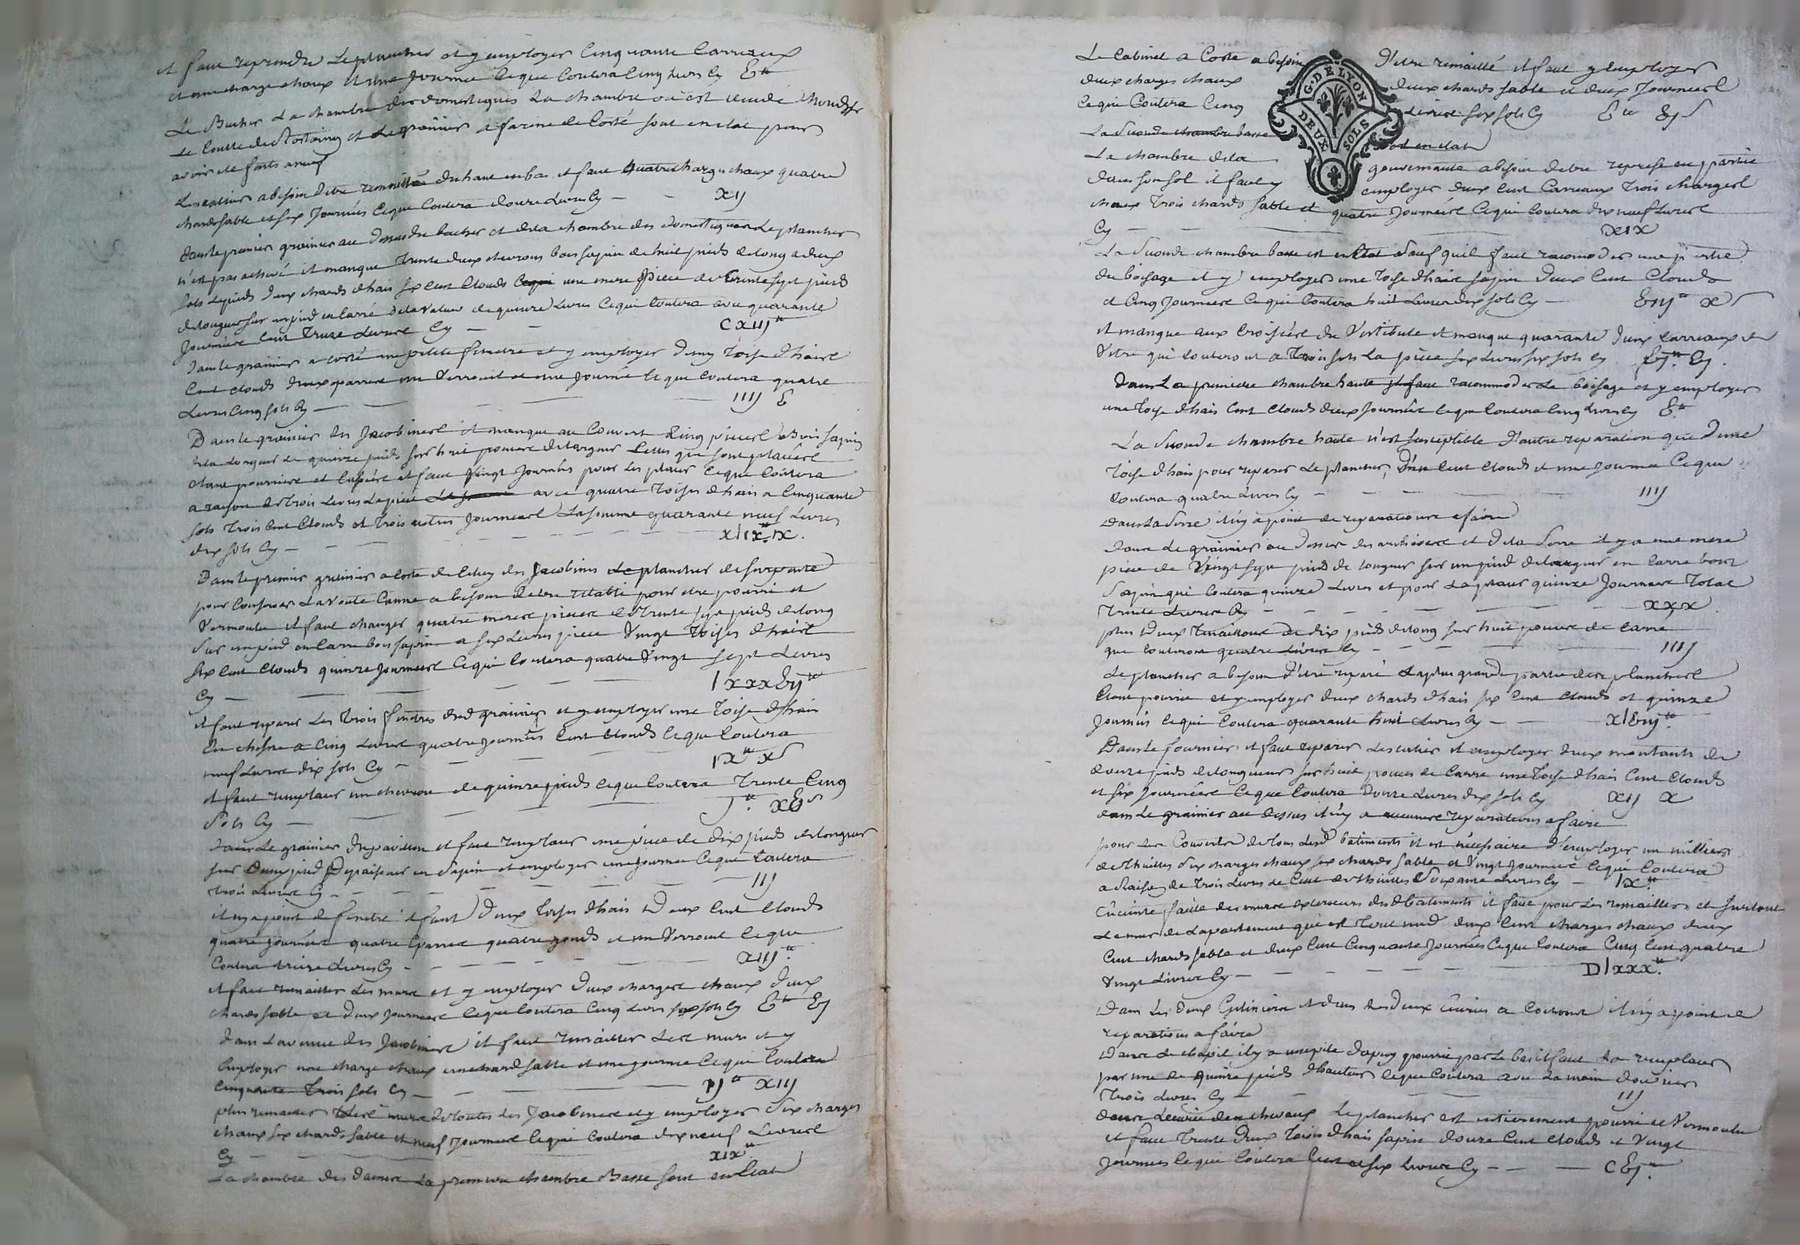 il faut reprendre le plancher et y employer cinquante carreaux
et une charge chaux et une journée ce que coutera cinq livres Cy V lt
Le Bucher La chambre des domestiques La chambre où est
Le et Le grainier a farine de Coste sont en etat pour
avoir ete faits a neuf
besoin detre remaillés du haut en bas il faut quatre charges chaux quatre
chards sable et six Journées ce que Coutera douze Livres Cy - - XIJ
dans le premier grainier au dessus du bucher et de la chambre des domestiques Le plancher
n'est pas achevé il manque trente deux chevrons bois sapin de huit pieds de long a deux
sols le pied deux chards d'hais six cent Clouds une mere piece de trente sept pieds
de longueur sur un pied en Carré de la valeur de quinze Livres ce qui Coutera avec quarante
Journées Cent Treize Livres Cy - - CXIIJ lt
dans le grainier a costé une petite fenetre et y employer demy toise d'hais
Cent clouds deux eparres un verrouil et une Journée ce que Coutera quatre
Livres Cinq sols Cy - - IIIJ V
Dans le grainier des Jacobines il manque au Couvert Cinq pieces de bois sapin
de la longueur de quinze pieds sur huit pouces de largeur Celles qui sont placées
etant pourries et il faut vingt Journées pour les placer ce que Coutera
a raison de trois Livres la piece avec quatre toises d'hais a Cinquante
sols Trois Cent Clouds et Trois autres Journées La somme quarante neuf Livres
dix sols Cy - - XLIX lt X.
Dans le premier grainier a Costé de Celuy des Jacobines le plancher
pour Conserver La voute a besoin detre retabli pour etre pourri et
Vermoulu il faut changer quatre meres pieces de trente sept pieds de long
sur un pied en Carré bois sapin a six Livres piece Vingt Toises d'hais
six cent Clouds quinze Journées ce qui Coutera quatre Vingt sept Livres
Cy - - LXXXVIJ lt
il faut reparer Les trois fenetres dud grainier et y employer une Toise d'hais
En chesne a Cinq Livres quatre Journées Cent Clouds ce que Coutera
neuf Livres dix sols Cy - IX lt X s
il faut remplacer un chevron de quinze pieds ce que Coutera Trente Cinq
Sols Cy - J lt XV s
dans Le grainier du pavillon il faut remplacer une piece de dix pieds de longueur
sur demy pied d'epaisseur en Sapin et employer une Journée ce que Coutera
trois Livres Cy - IIJ
il n'y a point de fenetre il faut deux toises d'hais deux Cent Clouds
quatre Journées quatre Eparres quatre gonds et un Verrouil ce que
Coutera treize Livres Cy - XIIJ lt
il faut remailler Les murs et y employer deux charges chaux deux
chards sable et deux Journées ce que Coutera Cinq Livres six sols Cy V lt VJ
dans L'avenue des Jacobines il faut remailler Les murs et y
Employer une charge chaux un chard sable et une Journée ce que Coutera
Cinquante Trois sols Cy - IJ lt XIIJ
plus remailler murs des Jacobines et y employer six charges
chaux six chards sable et neuf Journées ce que Coutera dix neuf Livres
Cy - XIX lt
La chambre des dames La premiere chambre Basse sont en Etat
Le Cabinet a Coste a besoin d'etre remaillé il faut y employer
deux charges chaux deux chards sable et deux Journées
ce qui Coutera Cinq Livres six sols Cy V lt VJ s
La Seconde chambre basse sont en etat
La chambre de la gouvernante a besoin detre reprise en partie
dans son sol il faut y employer deux Cent Carreaux trois charges
chaux trois chards sable et quatre Journées ce qui Coutera dix neuf Livres
Cy XIX
La Seconde chambre basse est en Etat Sauf qu'il faut racomoder une partie
du boisage et y employer une Toise d'hais sapin deux Cent Clouds
et Cinq Journées ce qui Coutera huit Livres dix sols Cy - VIIJ lt X s
il manque aux Croisées du Vestibule il manque quarante deux Carreaux de
Vitre qui Couteront a Trois sols La piece six Livres six sols Cy VJ lt VJ
dans La premiere chambre haute il faut racommoder Le boisage et y employer
une Toise d'hais Cent Clouds deux Journées ce que Coutera Cinq Livres Cy V lt
La Seconde chambre haute n'est susceptible d'autre reparation que d'une
Toise d'hais pour reparer Le plancher d'un Cent Clouds et une Journée Ce que
Coutera quatre Livres Cy - - - IIIJ
dans La Serre il n'y a point de reparations a faire
dans Le grainier au dessus des archives et de la Serre il y a une mere
piece de Vingt Sept pieds de longueur sur un pied de largeur en Carré bois
Sapin qui Coutera quinze Livres et pour La placer quinze Journées Total
Trente Livres Cy - - XXX
plus deux de dix pieds de long sur huit pouces de Carré
que Couteront quatre Livres Cy - - IIIJ
Le plancher a besoin d'etre reparé La plus grande partie des planches
Etant pourrie et y employer deux chards d'hais six Cent Clouds et quinze
Journées ce qui Coutera quarante huit Livres Cy - XLVIIJ lt
Dans le fournier il faut reparer et employer deux montants de
douze pieds de longueur sur huit pouces de Carré une Toise d'hais Cent Clouds
et six Journées ce que Coutera Douze Livres dix sols Cy XIJ X
dans Le grainier au dessus il n'y a aucunes reparations a faire
pour Les Couverts de tous lesd batiments il est necessaire d'employer un millier
de thuilles six charges chaux six chards sable et Vingt Journées ce que Coutera
a Raison de Trois Livres le Cent de thuilles Soixante Livres Cy - LX lt
faite des murs exterieurs desd batiments il faut pour Les remailler et surtout
Le mur de L'apartement qui est tout nud deux Cent charges chaux deux
Cent chards sable et deux Cent Cinquante Journées ce que Coutera Cinq Cent quatre
Vingt Livres Cy - DLXXX lt
Dans Les deux et dans Les deux écuries a Cochons il n'y a point de
reparations a faire
dans Le chapit il y a une pile d'apuy pourrie par Le bas il faut La remplacer
par une de quinze pieds d'hauteur ce que Coutera avec La main d'ouvrier
Trois Livres Cy - IIJ
dans L'ecurie des chevaux Le plancher est entierement pourri et Vermoulu
il faut Trente deux Toises d'hais sapin douze Cent Clouds et Vingt
Journées ce qui Coutera Cent et six Livres Cy - - CVJ lt
G. DE LYON
DEUX SOLS